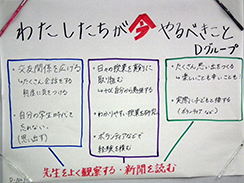 わたしたちが今やるべきこと
Dグループ
・交友関係を広げる
たくさん会話をする
制度に気をつける
・自分の学生時代を
忘れない。
(思い出す)
・日々の授業を真剣に
取り組む
・わかりやすい授業を研究
・ボランティアなどで
経験を積む
・たくさん思い出をつくる
楽しいことも辛いことも
・実際に子どもと接する
(ボランティアなど)
先生をよく観察する・新聞を読む